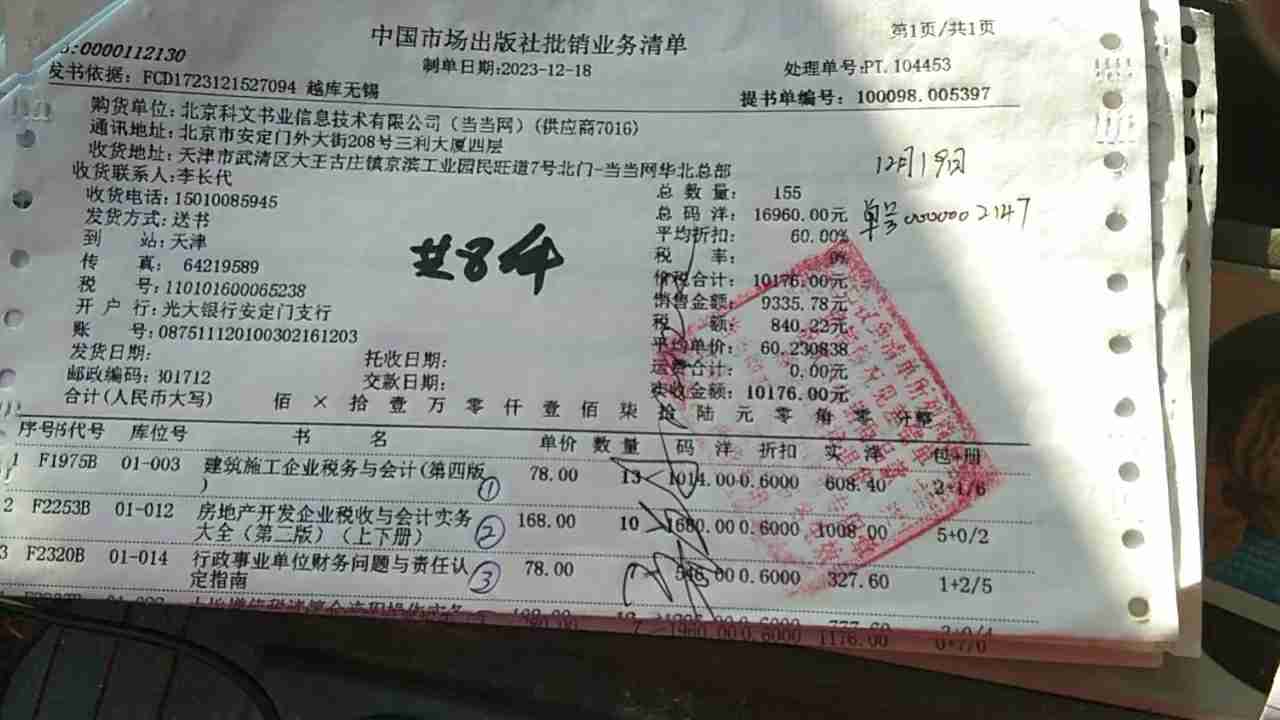 中国市场出版社批销业务清单
第1页/共1页
:0000112130
制单日期:2023-12-18
处理单号:PT.104453
发书依据: FCD1723121527094 越库无锡
提书单编号: 100098.005397
购货单位: 北京科文书业信息技术有限公司(当当网)(供应商7016)
通讯地址: 北京市安定门外大街208号三利大厦四层
收货地址: 天津市武清区大王古庄镇京滨工业园民旺道7号北门-当当网华北总部
收货联系人: 李长代
收货电话: 15010085945
发货方式: 送书
到 站: 天津
传 真: 64219589
税 号: 110101600065238
开 户 行: 光大银行安定门支行
账 号: 087511120100302161203
发货日期:
托收日期:
邮政编码: 301712
交款日期:
共8件
总 数 量: 155
总 码 洋: 16960.00元
平均折扣: 60.00%
税 率: 0%
价税合计: 10176.00元
销售金额: 9335.78元
税 额: 840.22元
平均单价: 60.230838
运费合计: 0.00元
实收金额: 10176.00元
12月19日
单号00000002147
合计(人民币大写) 佰 × 拾 壹 万 零 仟 壹 佰 柒 拾 陆 元 零 角 零 分整
序号 书代号 库位号 书 名 单价 数量 码 洋 折扣 实 洋 包+册
1 F1975B 01-003 建筑施工企业税务与会计(第四版 ① 78.00 13 1014.00 0.6000 608.40 2+1/6
)
2 F2253B 01-012 房地产开发企业税收与会计实务 ② 168.00 10 1680.00 0.6000 1008.00 5+0/2
大全(第二版)(上下册)
3 F2320B 01-014 行政事业单位财务问题与责任认 ③ 78.00 7 546.00 0.6000 327.60 1+2/5
定指南
1960.00 0.6000 1176.00